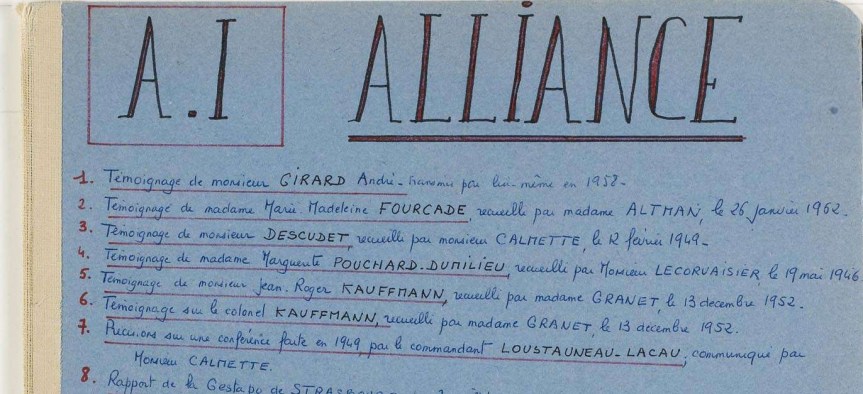 A.I ALLIANCE
1. Témoignage de monsieur GIRARD André - transmis par lui-même en 1958 -
2. Témoignage de madame Marie Madeleine FOURCADE, recueilli par madame ALTMAN, le 26 janvier 1962.
3. Témoignage de monsieur DESCUDET, recueilli par monsieur CALMETTE, le 12 février 1949 -
4. Témoignage de madame Marguerite POUCHARD.DUMILIEU, recueilli par Monsieur LECORVAISIER, le 19 mai 1946
5. Témoignage de monsieur Jean. Roger KAUFFMANN, recueilli par madame GRANET, le 13 decembre 1952.
6. Témoignage sur le colonel KAUFFMANN, recueilli par madame GRANET, le 13 décembre 1952.
7. Précisions sur une conférence faite en 1949, par le commandant LOUSTAUNEAU-LACAU, communiqué par
Monsieur CALMETTE.
8. Rapport de la Gestapo de